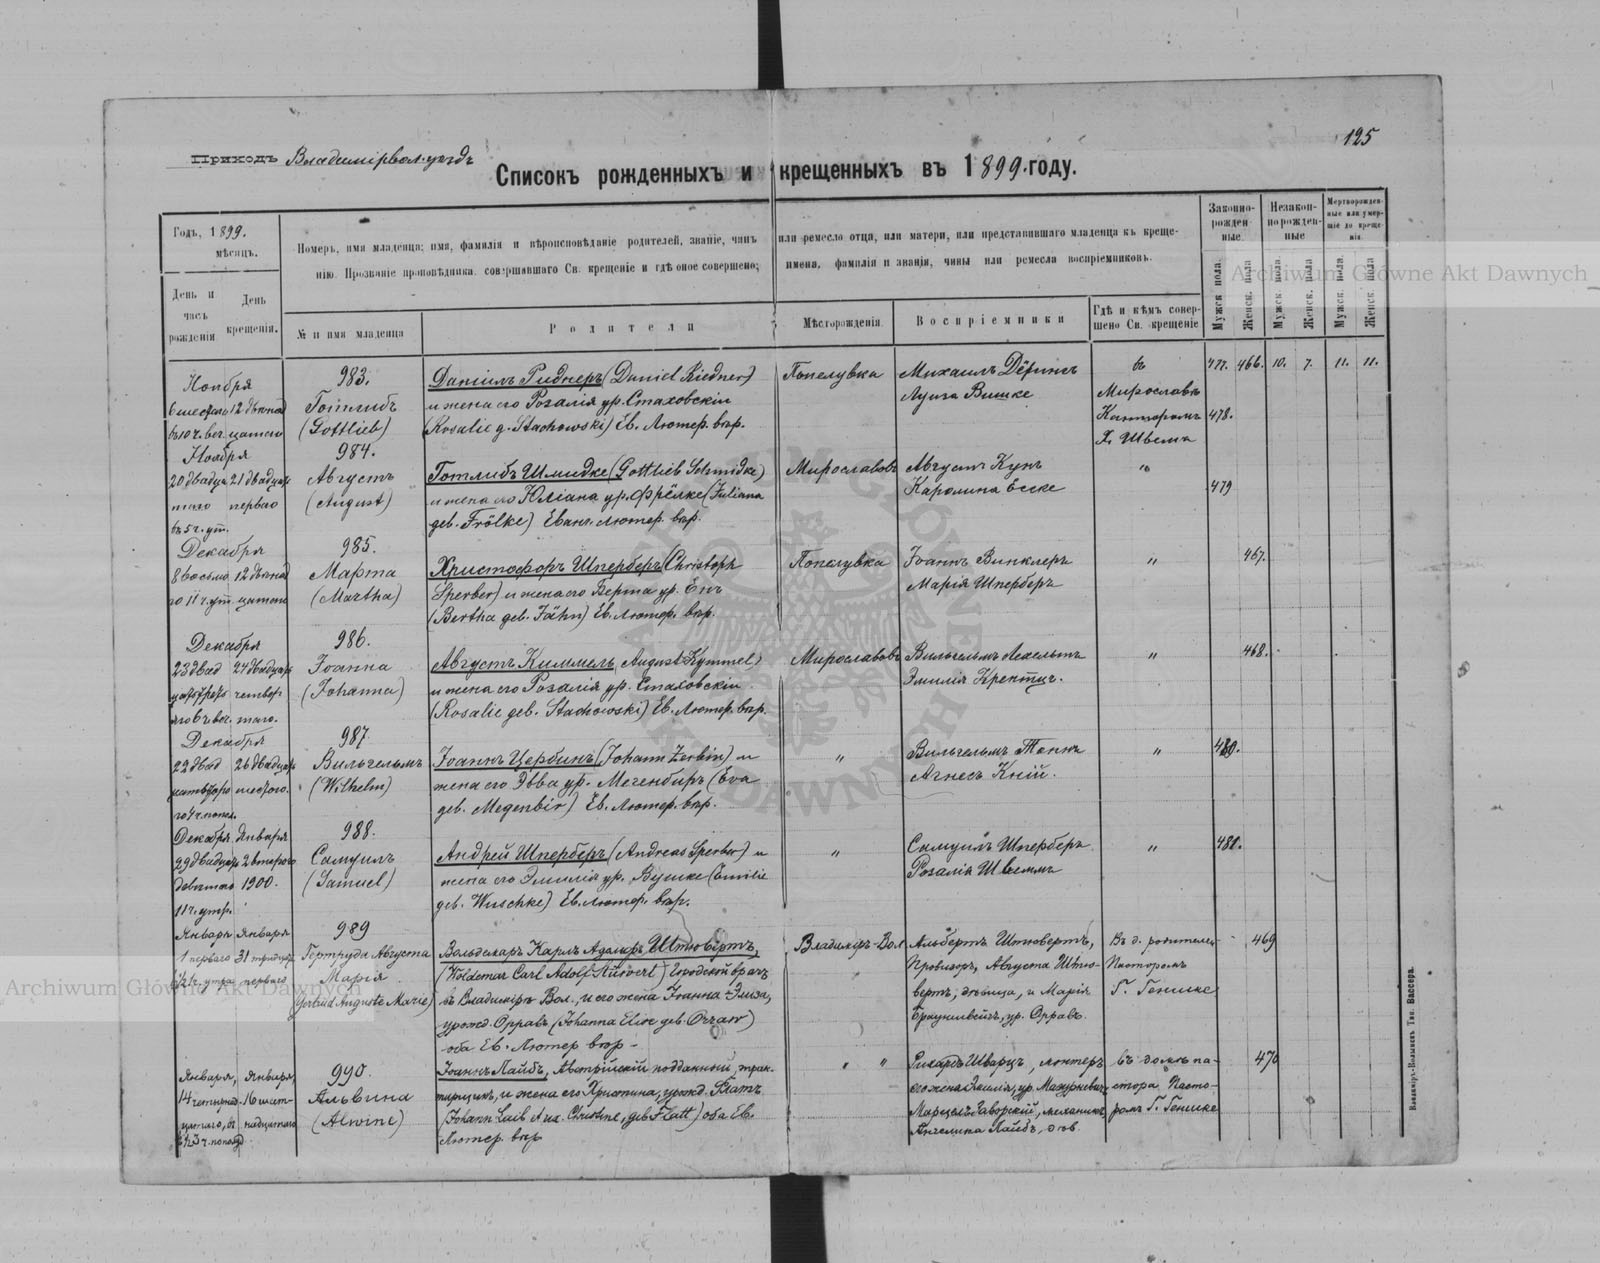 125
Приходъ Владимірвол. уѣздъ
Списокъ рожденныхъ и крещенныхъ въ 1899 году.
Годъ, 1899.
мѣсяцъ.
День и часъ рожденія
День крещенія.
Номеръ, имя младенца; имя, фамилія и вѣроисповѣданіе родителей, званіе, чинъ или ремесло отца, или матери, или представившаго младенца къ креще-
нію. Прозваніе проповѣдника, совершавшаго Св. крещеніе и гдѣ оное совершено; имена, фамилія и званія, чины или ремесла воспріемниковъ.
№ и имя младенца
Родители
Мѣсторожденія
Воспріемники
Гдѣ и кѣмъ совер-
шено Св. крещеніе
Законно-
рожден-
ные
Незакон-
норожден-
ные
Мертворожден-
ные или умер-
шіе до креще-
нія
Мужск. пола.
Женск. пола
Мужск. пола.
Женск. пола.
Мужск. пола.
Женск. пола
Ноября
6 шестаго 12 двѣнад
въ 10 ч. веч. цатаго
983.
Готлибъ
(Gottlieb)
Даніилъ Риднеръ (Daniel Riedner)
и жена его Розалія ур. Стаховскіи
(Rosalie g. Stachowski) Ев. Лютер. вѣр.
Попелувка
Михаилъ Дёринъ
Луиза Вишке
въ
Мирославѣ
Канторомъ
477. 466. 10. 7. 11. 11.
478.
Ноября
20 двадца 21 двадцат
таго перваго
въ 5 ч. ут.
984.
Августъ
(August)
Готлибъ Шмидке (Gottlieb Schmidke)
и жена его Юліана ур. Фрёлке (Juliana
geb. Frölke) Еванг. лютер. вѣр.
Мирославовъ
Августъ Кунъ
Каролина Ёске
"
479
Декабря
8 восьмо 12 двѣнад
го 11 ч. ут. цатаго
985.
Марта
(Martha)
Христофоръ Шперберъ (Christoph
Sperber) и жена его Берта ур. Енъ
(Bertha geb. Jähn) Ев. Лютер. вѣр.
Попелувка
Іоаннъ Винклеръ
Марія Шперберъ
"
467.
Декабря
23 двад 24 двадцать
четвер
таго.
986.
Іоанна
(Johanna)
Августъ Киммель (August Kymmel)
и жена его Розалія ур. Стаховскіи
(Rosalie geb. Stachowski) Ев. Лютер. вѣр.
Мирославовъ
Вильгельмъ
Эмилія
"
468.
Декабря
22 двад 26 двадцат
шестого.
987.
Вильгельмъ
(Wilhelm)
Іоаннъ Цербинъ (Johann Zerbin) и
жена его Эвва ур. Мегенбиръ (Eva
geb. Megenbir) Ев. Лютер. вѣр.
"
Вильгельмъ
Агнесъ Кній.
"
480.
Декабря Января
29 двадцат 2 второго
девятаго 1900.
11 ч. утр.
988.
Самуилъ
(Samuel)
Андрей Шперберъ (Andreas Sperber) и
жена его Эмилія ур. Вушке (Emilie
geb. Wuschke) Ев. лютер. вѣр.
"
Самуилъ Шперберъ
Розалія Швеммъ
"
481.
Января Января
1 перваго 31 тридцат
утра перваго
989
Гертруда Августа
Марія
Gertrud Auguste Marie)
Вольдемаръ Карлъ Адольфъ Штювертъ,
(Woldemar Carl Adolf Stüwert) Городской врачъ
въ Владимірѣ Вол., и его жена Іоанна-Элиза,
урожд. Орравъ (Johanna Elise geb. Orraw)
оба Ев. Лютер вѣр-
Владимір-Вол.
Альбертъ Штювертъ,
Провизоръ, Августа Штю-
вертъ, дѣвица, и Марія
Брауншвейгъ, ур. Орравъ.
Въ д. родителей
Пасторомъ
Г. Генике
469
Января, Января,
14 четырнад 16 шест-
цатаго, въ надцатаго
990.
Альвина
(Alwine)
Іоаннъ Лайбъ, Австрійскій подданный, трак-
тирщикъ, и жена его Христина, урожд. Флатъ
(Johann Laib Christine, geb. Flatt) оба Ев.
Лютер. вѣр
" "
Рихардъ Шварцъ, монтеръ
его жена Эмилія, ур. Мазуркевичъ,
механикъ
Ангелика Лайбъ,
въ домѣ па-
стора, Пасто-
ромъ Г. Генике
470
Владимір-Волынскъ Тип. Вассера.
Archiwum Główne Akt Dawnych
Archiwum Główne Akt Dawnych
ARCHIWUM GŁÓWNE AKT DAWNYCH